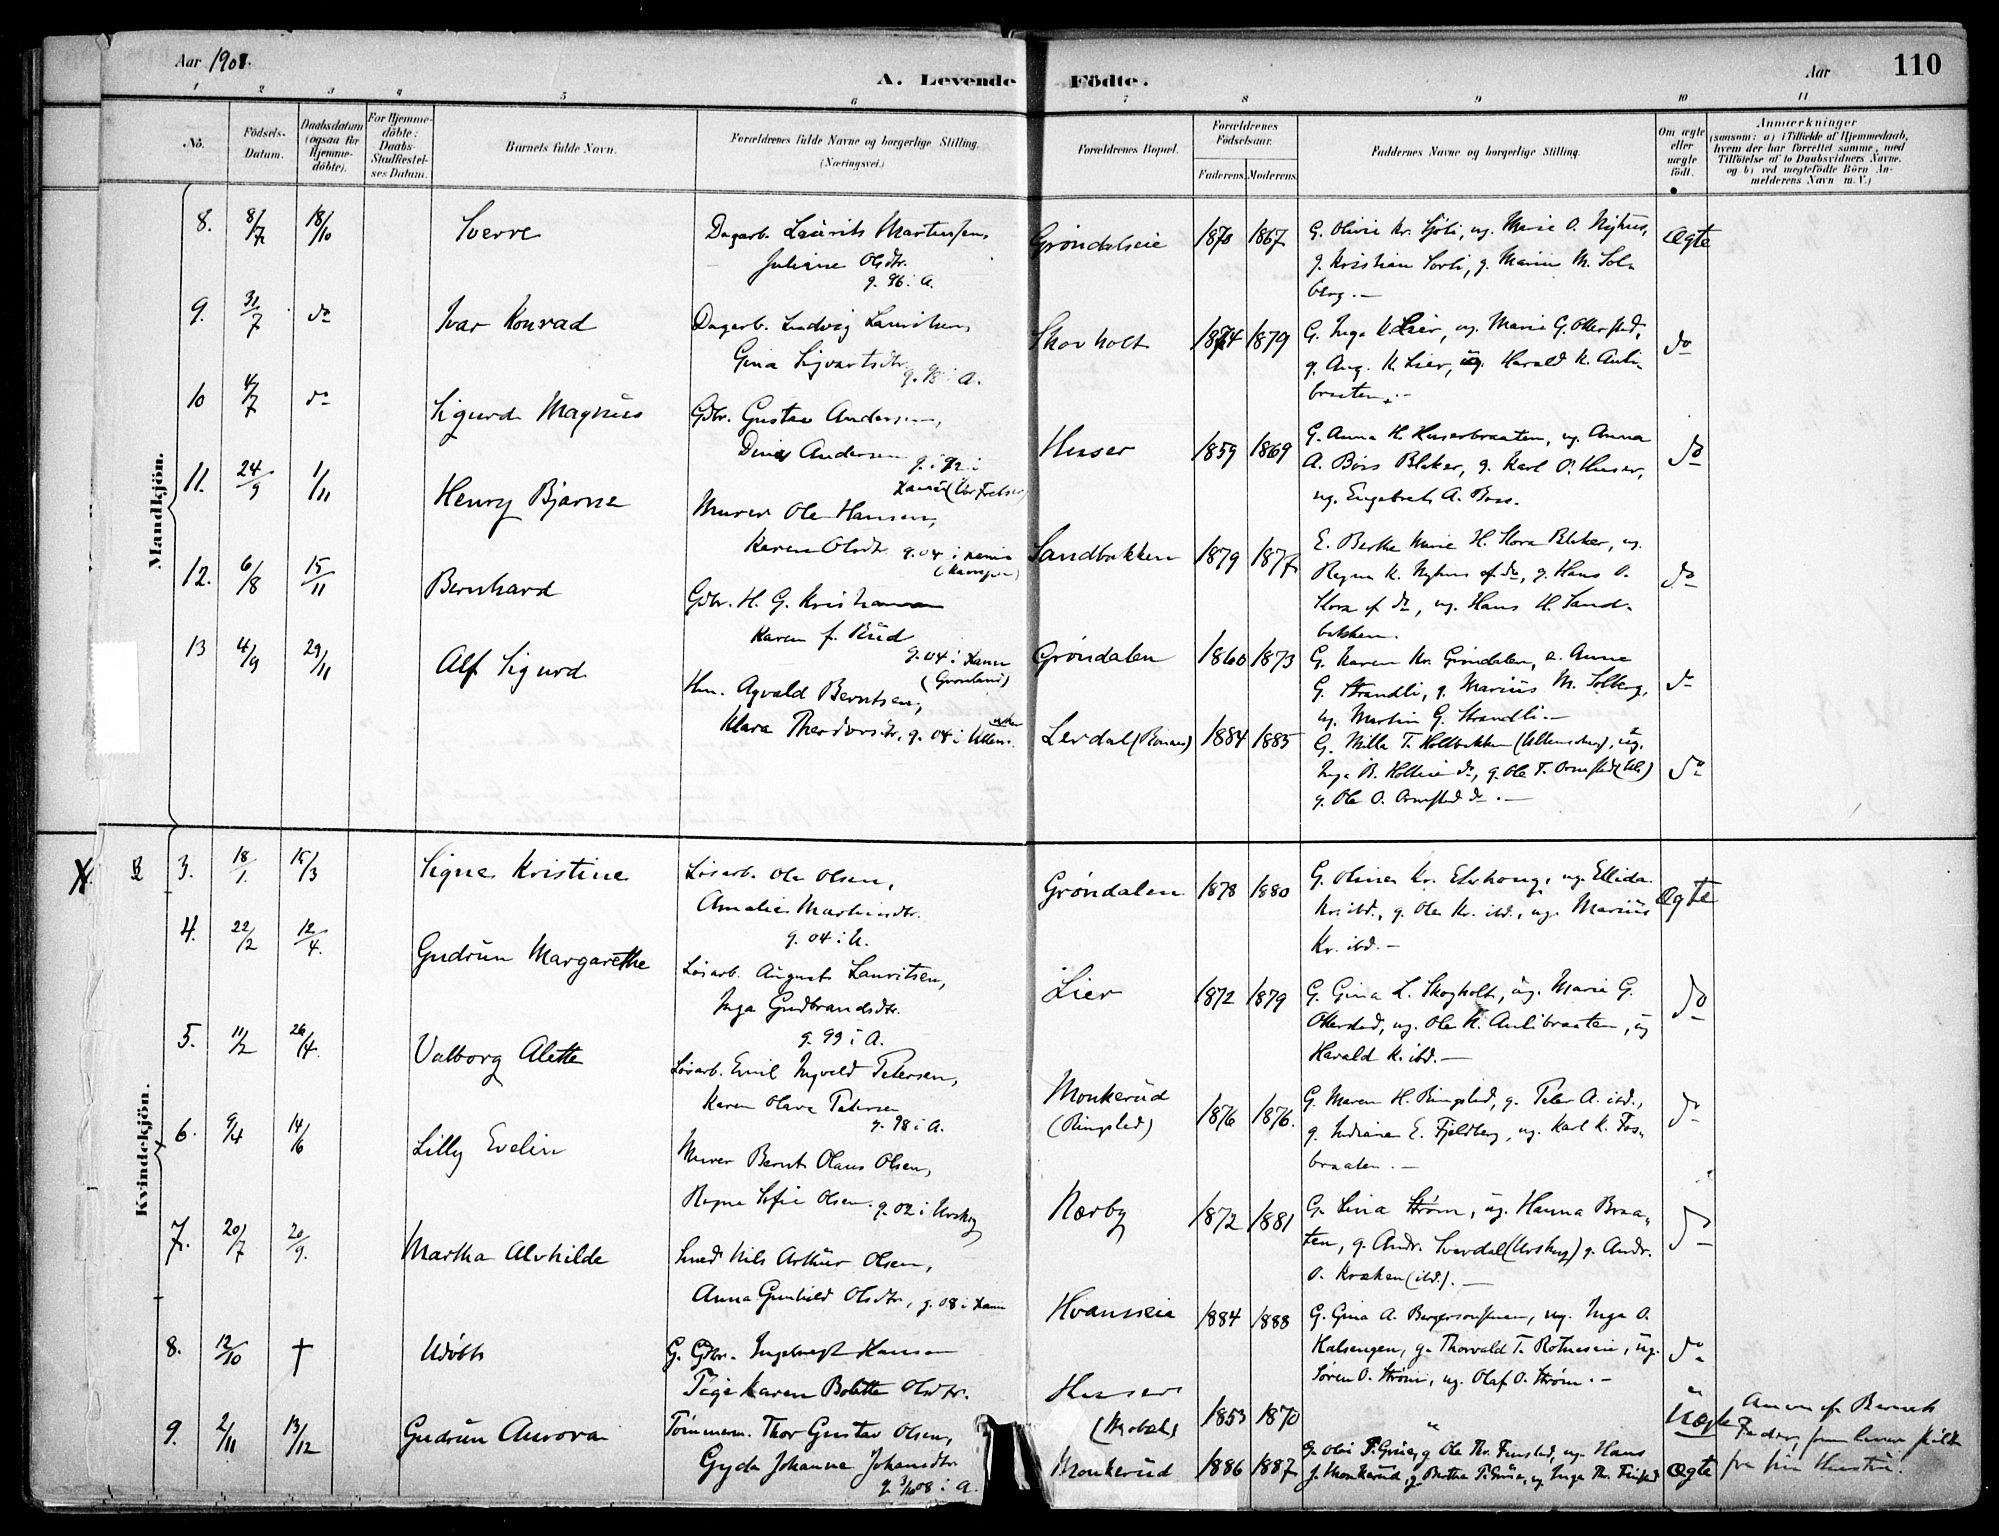 Aar 1908.
A. Levende Födte.
Aar
110
1 2 3 4 5 6 7 8 9 10 11
No.
Födsels-
Datum.
Daabsdatum
(ogsaa for
Hjemme-
döbte).
For Hjemme-
döbte:
Daabs-
Stadfæstel-
ses Datum.
Barnets fulde Navn.
Forældrenes fulde Navne og borgerlige Stilling.
(Næringsvei.)
Forældrenes Bopæl.
Forældrenes
Födselsaar.
Faderens. Moderens.
Faddernes Navne og borgerlige Stilling.
Om ægte
eller
uægte
født.
Anmærkninger
(saasom: a) i Tilfælde af Hjemmedaab,
hvem der har forrettet samme, med
Tilföielse af to Daabsvidners Navne,
og b) ved uægtefödte Börn An-
melderens Navn m. V.)
Mandkjön.
8. 8/7 18/10 Sverre
Dagarb. Laurits Martinsen,
Juliane Olsdtr.
g. 96 i A.
Grøndalseie 1870 1867
G. Olivie Kr. Sjöli, ug. Marie O. Nyhus,
g. Kristian Sorli, g. Marius M. Sol-
berg.—
Ægte
9. 31/7 do Ivar Konrad
Dagarb. Ludvig Lauritsen,
Gina Sigvartsdtr.
g. 98 i A.
Skovholt 1874 1879
G. Inga K. Lier, ug. Marie G. Otterstad,
g. Aug. K. Lier, ug. Harald K. Auli-
braaten.—
do
10 4/7 do Sigurd Magnus
Gdbr. Gustav Andersen,
Dina Andersen
g. i 92 i
Huser 1859 1869
G. Anna H. Huserbraaten, ug. Anna
A. Börs Blaker, g. Karl O. Huser,
ug. Engebret A. Bors.
do
11. 24/9 1/11 Henry Bjarne
Murer Ole Hansen,
Karen Olsdtr. g. 04 i
Sandbakken 1879 1877
E. Berthe Marie H. Stora Blaker, ug.
Regna K. Nyhus af do, g. Hans O.
Stora af do, ug. Hans H. Sand-
bakken.
do
12. 6/8 15/11 Bernhard
Gdbr. H. G. Kristiansen
Karen f. Rud
g. 04 i
(Grønland)
Grøndalen 1860 1873
G. Karen Kr. Grøndalen, e. Anne
G. Strandli, g. Marius M. Solberg,
ug. Martin G. Strandli.—
do
13 4/9 29/11 Alf Sigurd
Hm. Agvald Berntsen,
Klara Theodorsdtr. g. 04 i Ullens.
Lerdal 1884 1885
G. Milla T. Holtbakken (Ullensaker), ug.
Inga B. Holtnie do, g. Ole T. Ormstad (Ulls)
g. Ole O. Ormstad do.—
do
Kvindekjön.
3. 18/1. 15/3 Signe Kristine
Løsarb. Ole Olsen,
Amalie Martinsdtr.
g. 04 i A.
Grøndalen 1878 1880
G. Oline Kr. Elvhaug, ug. Ellida
Kr. ibd., g. Ole Kr. ibd., ug. Marius
Kr. ibd.—
Ægte
4. 22/2 12/4. Gudrun Margarethe
Løsarb. August Lauritsen,
Inga Gudbrandsdtr.
g. 99 i A.
Lier 1872 1879
G. Gina L. Skogholt, ug. Marie G.
Otterstad, ug. Ole K. Aulibraaten, ug
Harald K. ibd.—
do
5. 11/2 26/4. Valborg Alette
Løsarb. Emil Ingvald Petersen,
Karen Olava Petersen
g. 98 i A.
Monkerud
(Ringstad) 1876 1876.
G. Maren H. Ringstad, g. Peter A. ibd.,
g. Indiane E. Fjeldberg, ug. Karl K. Fos-
braaten.—
do
6. 9/4 14/6 Lilly Evelin
Murer Bernt Olaus Olsen,
Regna Sofie Olsen g. 02 i Urskog
Nærby 1872 1881
G. Lina Strøm, ug. Hanna Braa-
ten, g. Andr. Sverdal (Urskog) g. Andr.
O. Kraken (ibd.).—
do
7. 20/7 20/9. Martha Alvhilde
Smed Nils Arthur Olsen,
Anna Gunhild Olsdtr., g. 08 i
Hvamseie 1884 1888
G. Gina A. Borgersonsmoen, ug. Inga O.
Halsengen, g. Thorvald T. Rotneseie, ug.
Søren O. Strøm, ug. Olaf O. Strøm.—
do
8. 12/10 † Udöbt
G. Gdbr. Ingebregt Hansen
Pige Karen Bolette Olsdtr.
Huser 1853 1870
"
Uægte
Anm. af Barnets
Fader, som lever skilt
fra sin Hustru.
9. 2/11 13/12 Gudrun Aurora
Tømmerm. Thor Gustav Olsen,
Gyda Johanne Johansdtr.
g. 3/10 08 i A.
Monkerud 1886 1887
G. Olvi P. Grue, g Ole Thr. Finstad, ug. Hans
J. Monkerud, g Bertha P. Grue, ug Inga Thr. Finstad
Ægte